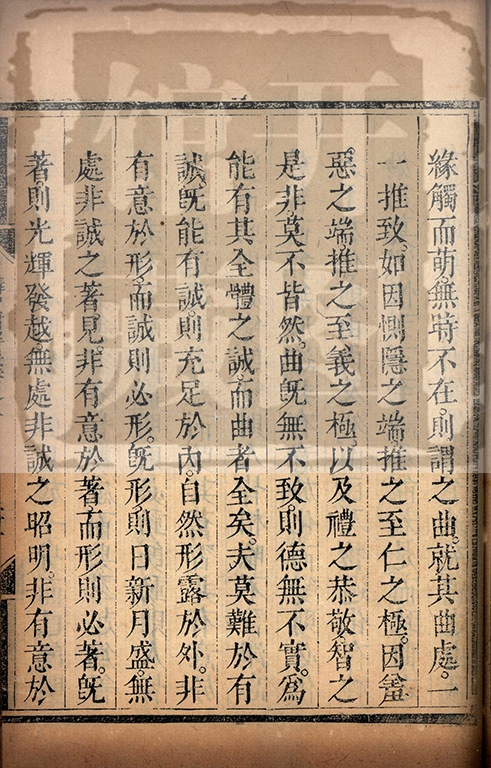 緣觸而萌。無時不在。則謂之曲。就其曲處。一
一推致。如因惻隱之端。推之至仁之極。因羞
惡之端推之至義之極。以及禮之恭敬智之
是非。莫不皆然。曲旣無不致。則德無不實。爲
能有其全體之誠。而曲者全矣。夫莫難於有
誠。旣能有誠。則充足於內。自然形露於外。非
有意於形。而誠則必形。旣形則日新月盛。無
處非誠之著見。非有意於著。而形則必著。旣
著則光輝發越無處非誠之昭明。非有意於